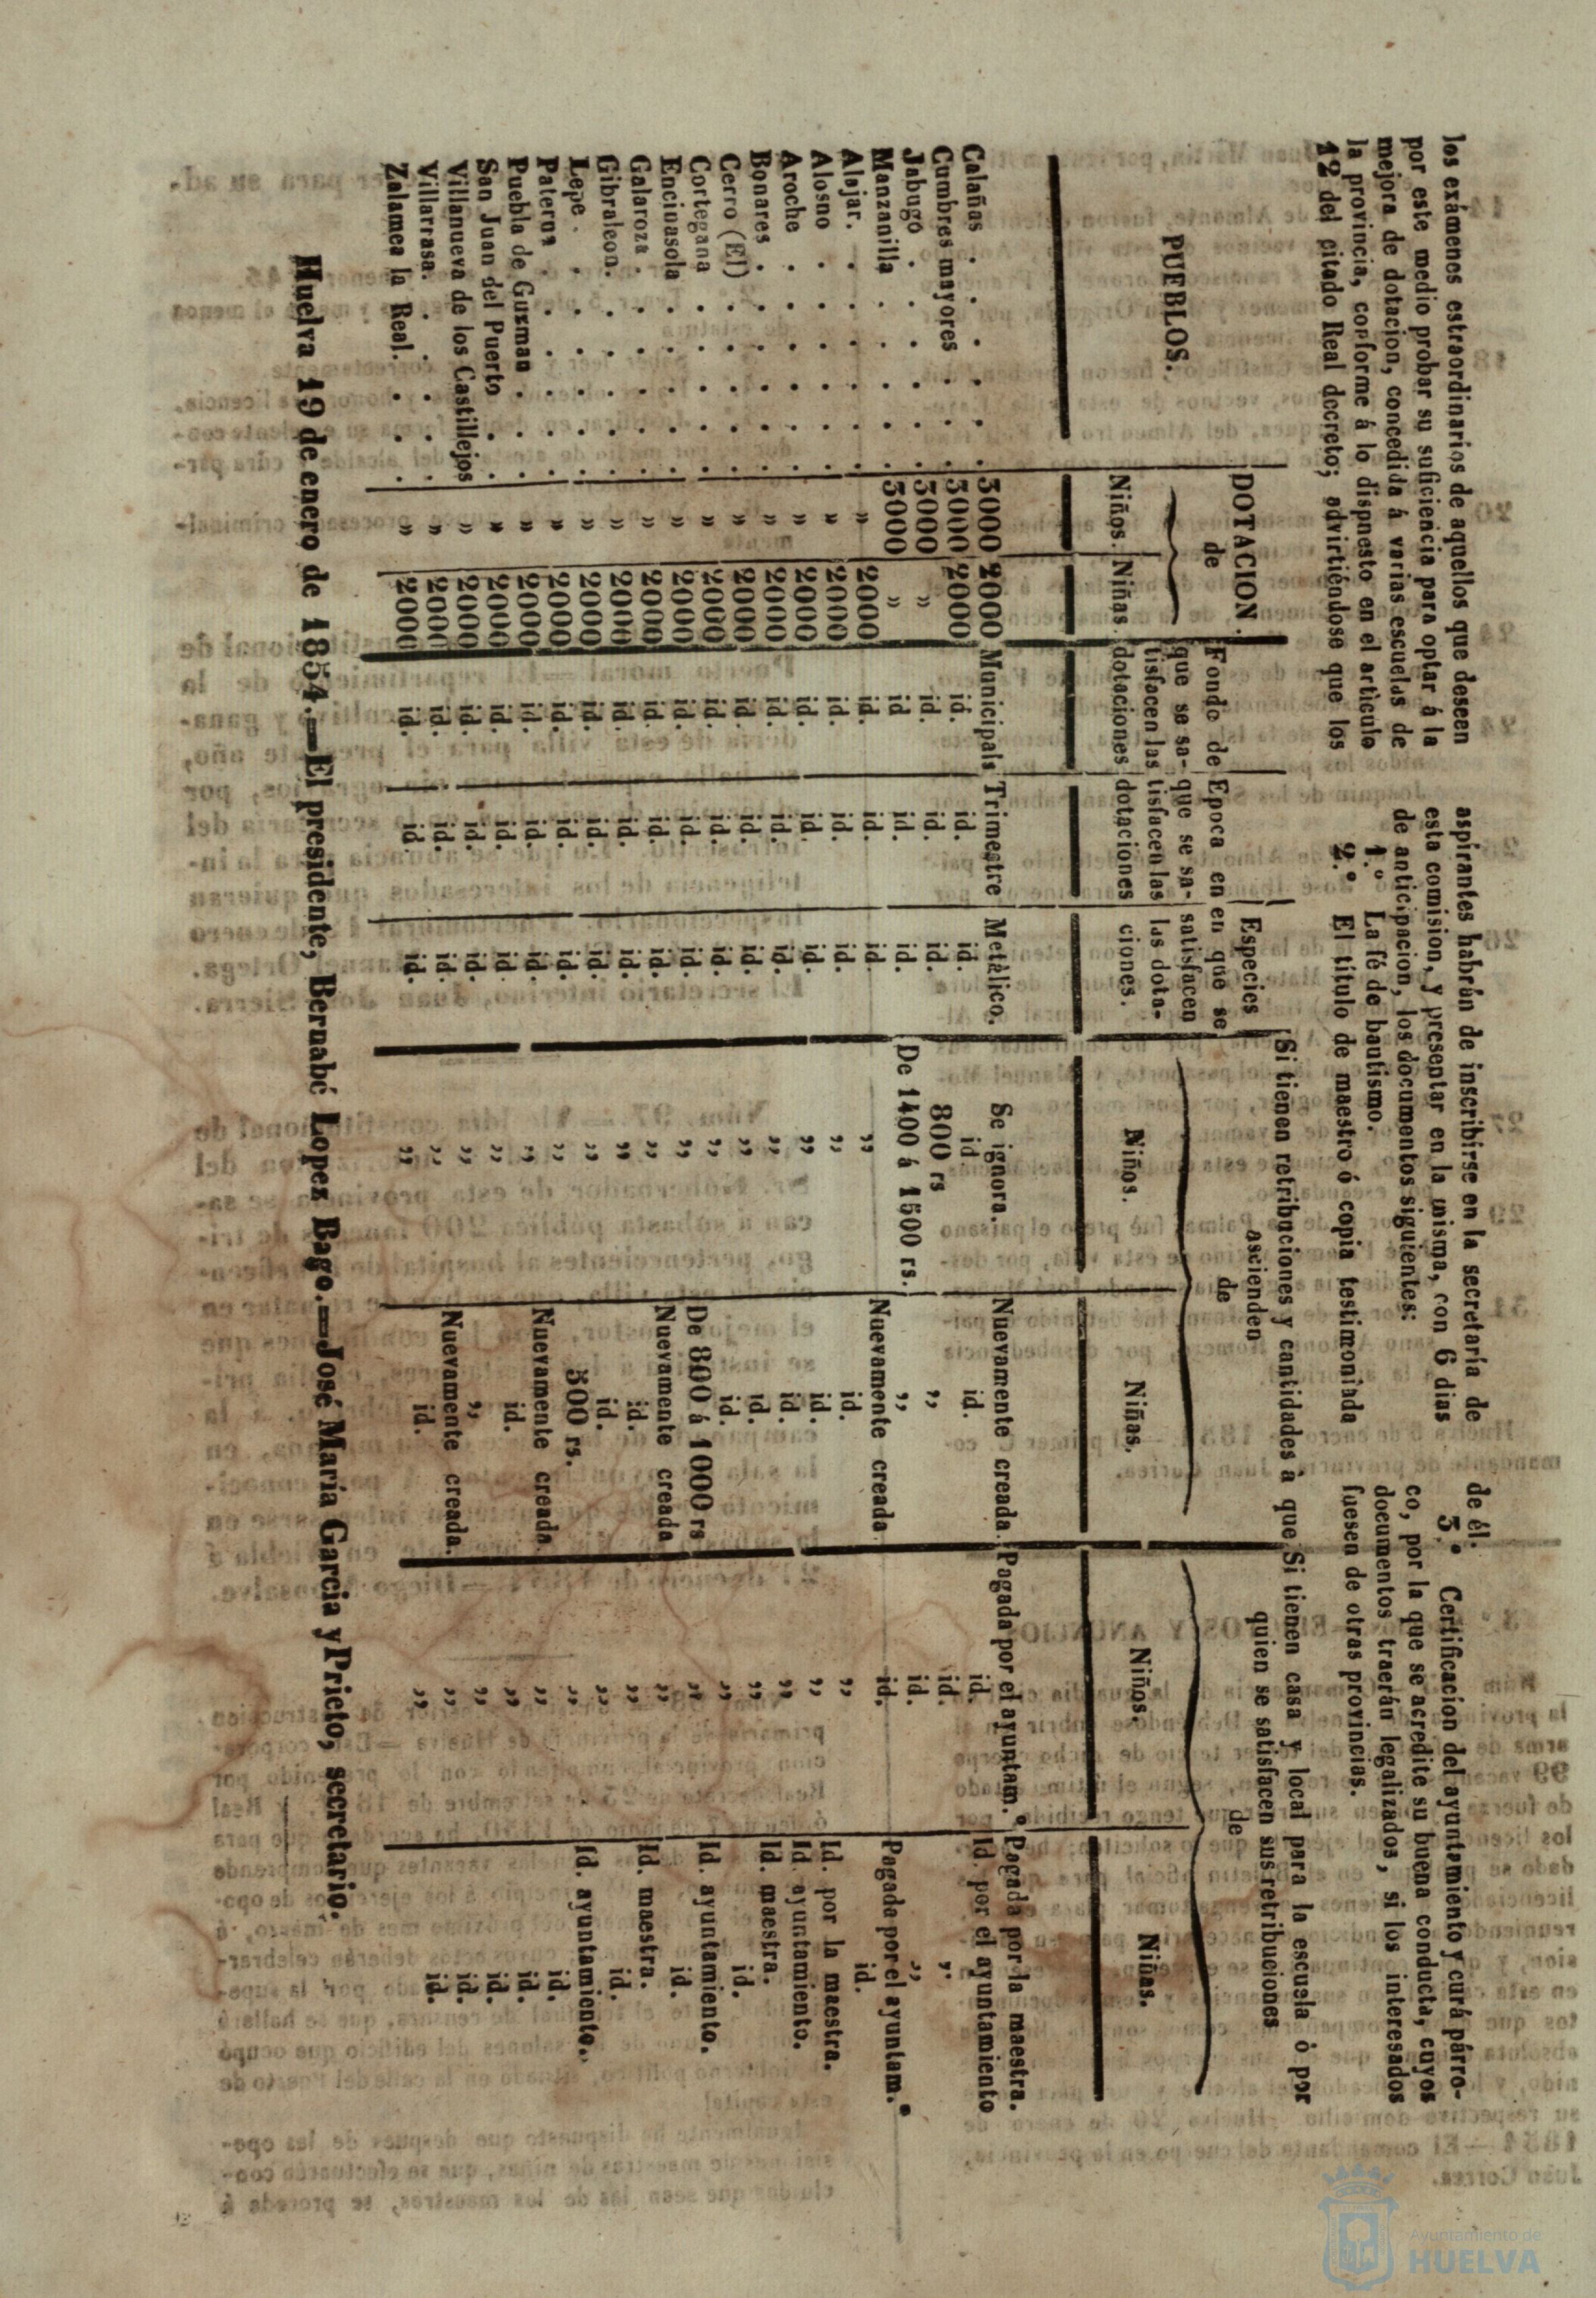 los exámenes estraordinarios de aquellos que deseen
por este medio probar su suficiencia para optar á la
mejora de dotacion, concedida á varias escuelas de
la provincia, conforme á lo dispuesto en el artículo
12 del citado Real decreto; advirtiéndose que los
aspirantes habrán de inscribirse en la secretaría de
esta comision, y presentar en la misma, con 6 dias
de anticipacion, los documentos siguientes:
1.º La fé de bautismo.
2.º El título de maestro ó copia testimoniada
de él.
3.º Certificacion del ayuntamiento y cura párro-
co, por la que se acredite su buena conducta, cuyos
documentos traerán legalizados, si los interesados
fuesen de otras provincias.
PUEBLOS.
DOTACION
de
Niños. Niñas.
Fondo de
que se sa-
tisfacen las
dotaciones
Epoca en
que se sa-
tisfacen las
dotaciones
Especies
en que se
satisfacen
las dota-
ciones.
Si tienen retribuciones y cantidades á que
ascienden
de
Niños. Niñas.
Si tienen casa y local para la escuela ó por
quien se satisfacen sus retribuciones
de
Niños. Niñas.
Calañas . . . . . 3000 2000 Municipals Trimestre Metálico. Se ignora. Nuevamente creada. Pagada por el ayuntam.º Pagada por la maestra.
Cumbres mayores . . . 3000 2000 id. id. id. id id. id. Id. por el ayuntamiento
Jabugo . . . . . 3000 " id. id. id. 800 rs " id. "
Manzanilla . . . . 3000 " id. id. id. De 1400 á 1500 rs. " id. "
Alajar. . . . . . " 2000 id. id. id. " Nuevamente creada id. Pagada por el ayuntam.º
Alosno . . . . . " 2000 id. id. id. " id. " id.
Aroche . . . . . " 2000 id. id. id. " id. " Id. por la maestra.
Bonares . . . . . " 2000 id. id. id. " id. " Id. ayuntamiento.
Cerro (El) . . . . " 2000 id. id. id. " id. " Id. maestra.
Cortegana . . . . " 2000 id. id. id. " id. " id.
Encinasola . . . . " 2000 id. id. id. " De 800 á 1000 rs " Id. ayuntamiento.
Galaroza . . . . . " 2000 id. id. id. " Nuevamente creada " id.
Gibraleon. . . . . " 2000 id. id. id. " id. " Id. maestra.
Lepe . . . . . . " 2000 id. id. id. " id. " id.
Paterna . . . . . " 2000 id. id. id. " 500 rs. " Id. ayuntamiento.
Puebla de Guzman . . . " 2000 id. id. id. " Nuevamente creada " id.
San Juan del Puerto . . " 2000 id. id. id. " id. " id.
Villanueva de los Castillejos " 2000 id. id. id. " " " id.
Villarrasa. . . . . " 2000 id. id. id. " Nuevamente creada. " id.
Zalamea la Real. . . . " 2000 id. id. id. " id. " id.
Huelva 19 de enero de 1854.—El presidente, Bernabé Lopez Bago.—José María García y Prieto, secretario.
Ayuntamiento de
HUELVA